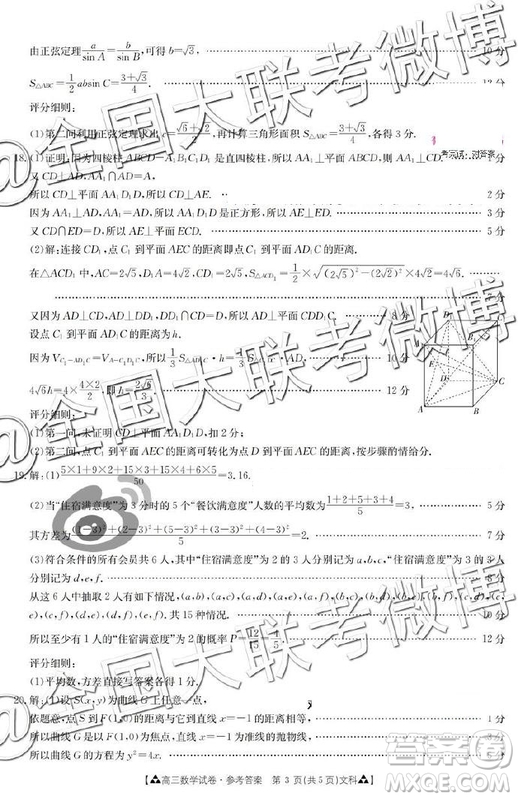 由正弦定理 a/sin A = b/sin B, 可得 b=√3. 10 分
S△ABC = 1/2 absin C = (3+√3)/4. 12 分
评分细则:
(1)第二问利用正弦定理求出 , 再计算三角形面积 S△ABC = (3+√3)/4, 各得 3 分.
18. (1)证明: 因为四棱柱 ABCD-A₁B₁C₁D₁ 是直四棱柱, 所以 AA₁⊥平面 ABCD, 则 AA₁⊥CD.
又 CD⊥AD, AA₁∩AD=A,
所以 CD⊥平面 AA₁D₁D, 所以 CD⊥AE. 2 分
因为 AA₁⊥AD, AA₁=AD, 所以 AA₁D₁D 是正方形, 所以 AE⊥ED. 3 分
又 CD∩ED=D, 所以 AE⊥平面 ECD. 5 分
(2)解: 连接 CD₁, 点 C₁ 到平面 AEC 的距离即点 C₁ 到平面 AD₁C 的距离.
在△ACD₁ 中, AC=2√5, D₁A=4√2, CD₁=2√5, S△ACD₁ = 1/2×√((2√5)²-(2√2)²)×4√2
又因为 AD⊥CD, AD⊥DD₁, DD₁∩CD=D, 所以 AD⊥平面 CC₁D₁D.
设点 C₁ 到平面 AD₁C 的距离为 h.
所以 1/3 S h = 1/3 S ·AD, 10 分
4√6h=4×(4×2)/2, 即 h=2√6/3. 12 分
评分细则:
(1)第一问, 未证明 CD⊥平面 AA₁D₁D 扣 2 分;
(2)第二问, 点 C₁ 到平面 AEC 的距离可转化为点 D 到平面 AEC 的距离, 按步骤酌情给分.
19. 解: (1) (5×1+9×2+15×3+15×4+6×5)/50 = 3.16.
(2)当“住宿满意度”为 3 分时的 5 个“餐饮满意度”人数的平均数为 (1+2+5+3+4)/5 = 3,
其方差为 ((1-3)²+(2-3)²+(5-3)²+(3-3)²+(4-3)²)/5 = 2.
(3)符合条件的所有会员共 6 人, 其中“住宿满意度”为 2 的 3 人分别记为 a,b,c, “住宿满意度”为 3 的 3 人
分别记为 d,e,f.
从这 6 人中抽取 2 人有如下情况, (a,b),(a,c),(a,d),(a,e),(a,f),(b,c),(b,d),(b,e),(b,f),(c,d),(c,
e),(c,f),(d,e),(d,f),(e,f). 共 15 种情况.
所以至少有 1 人的“住宿满意度”为 2 的概率 P=12/15=4/5. 12 分
评分细则:
(1)平均数, 方差若直接写答案各得 1 分.
20. 解: (1)设 S(x,y)为曲线 G 上任意一点,
依题意, 点 S 到 F(1,0)的距离与它到直线 x=-1 的距离相等, 1 分
所以曲线 G 是以 F(1,0)为焦点, 直线 x=-1 为准线的抛物线, 3 分
所以曲线 G 的方程为 y²=4x. 6 分
高三数学试卷·参考答案 第 3 页(共 5 页)文科
@全国大联考微博
@全国大联考微博
@全国大联考微博
A
B
C